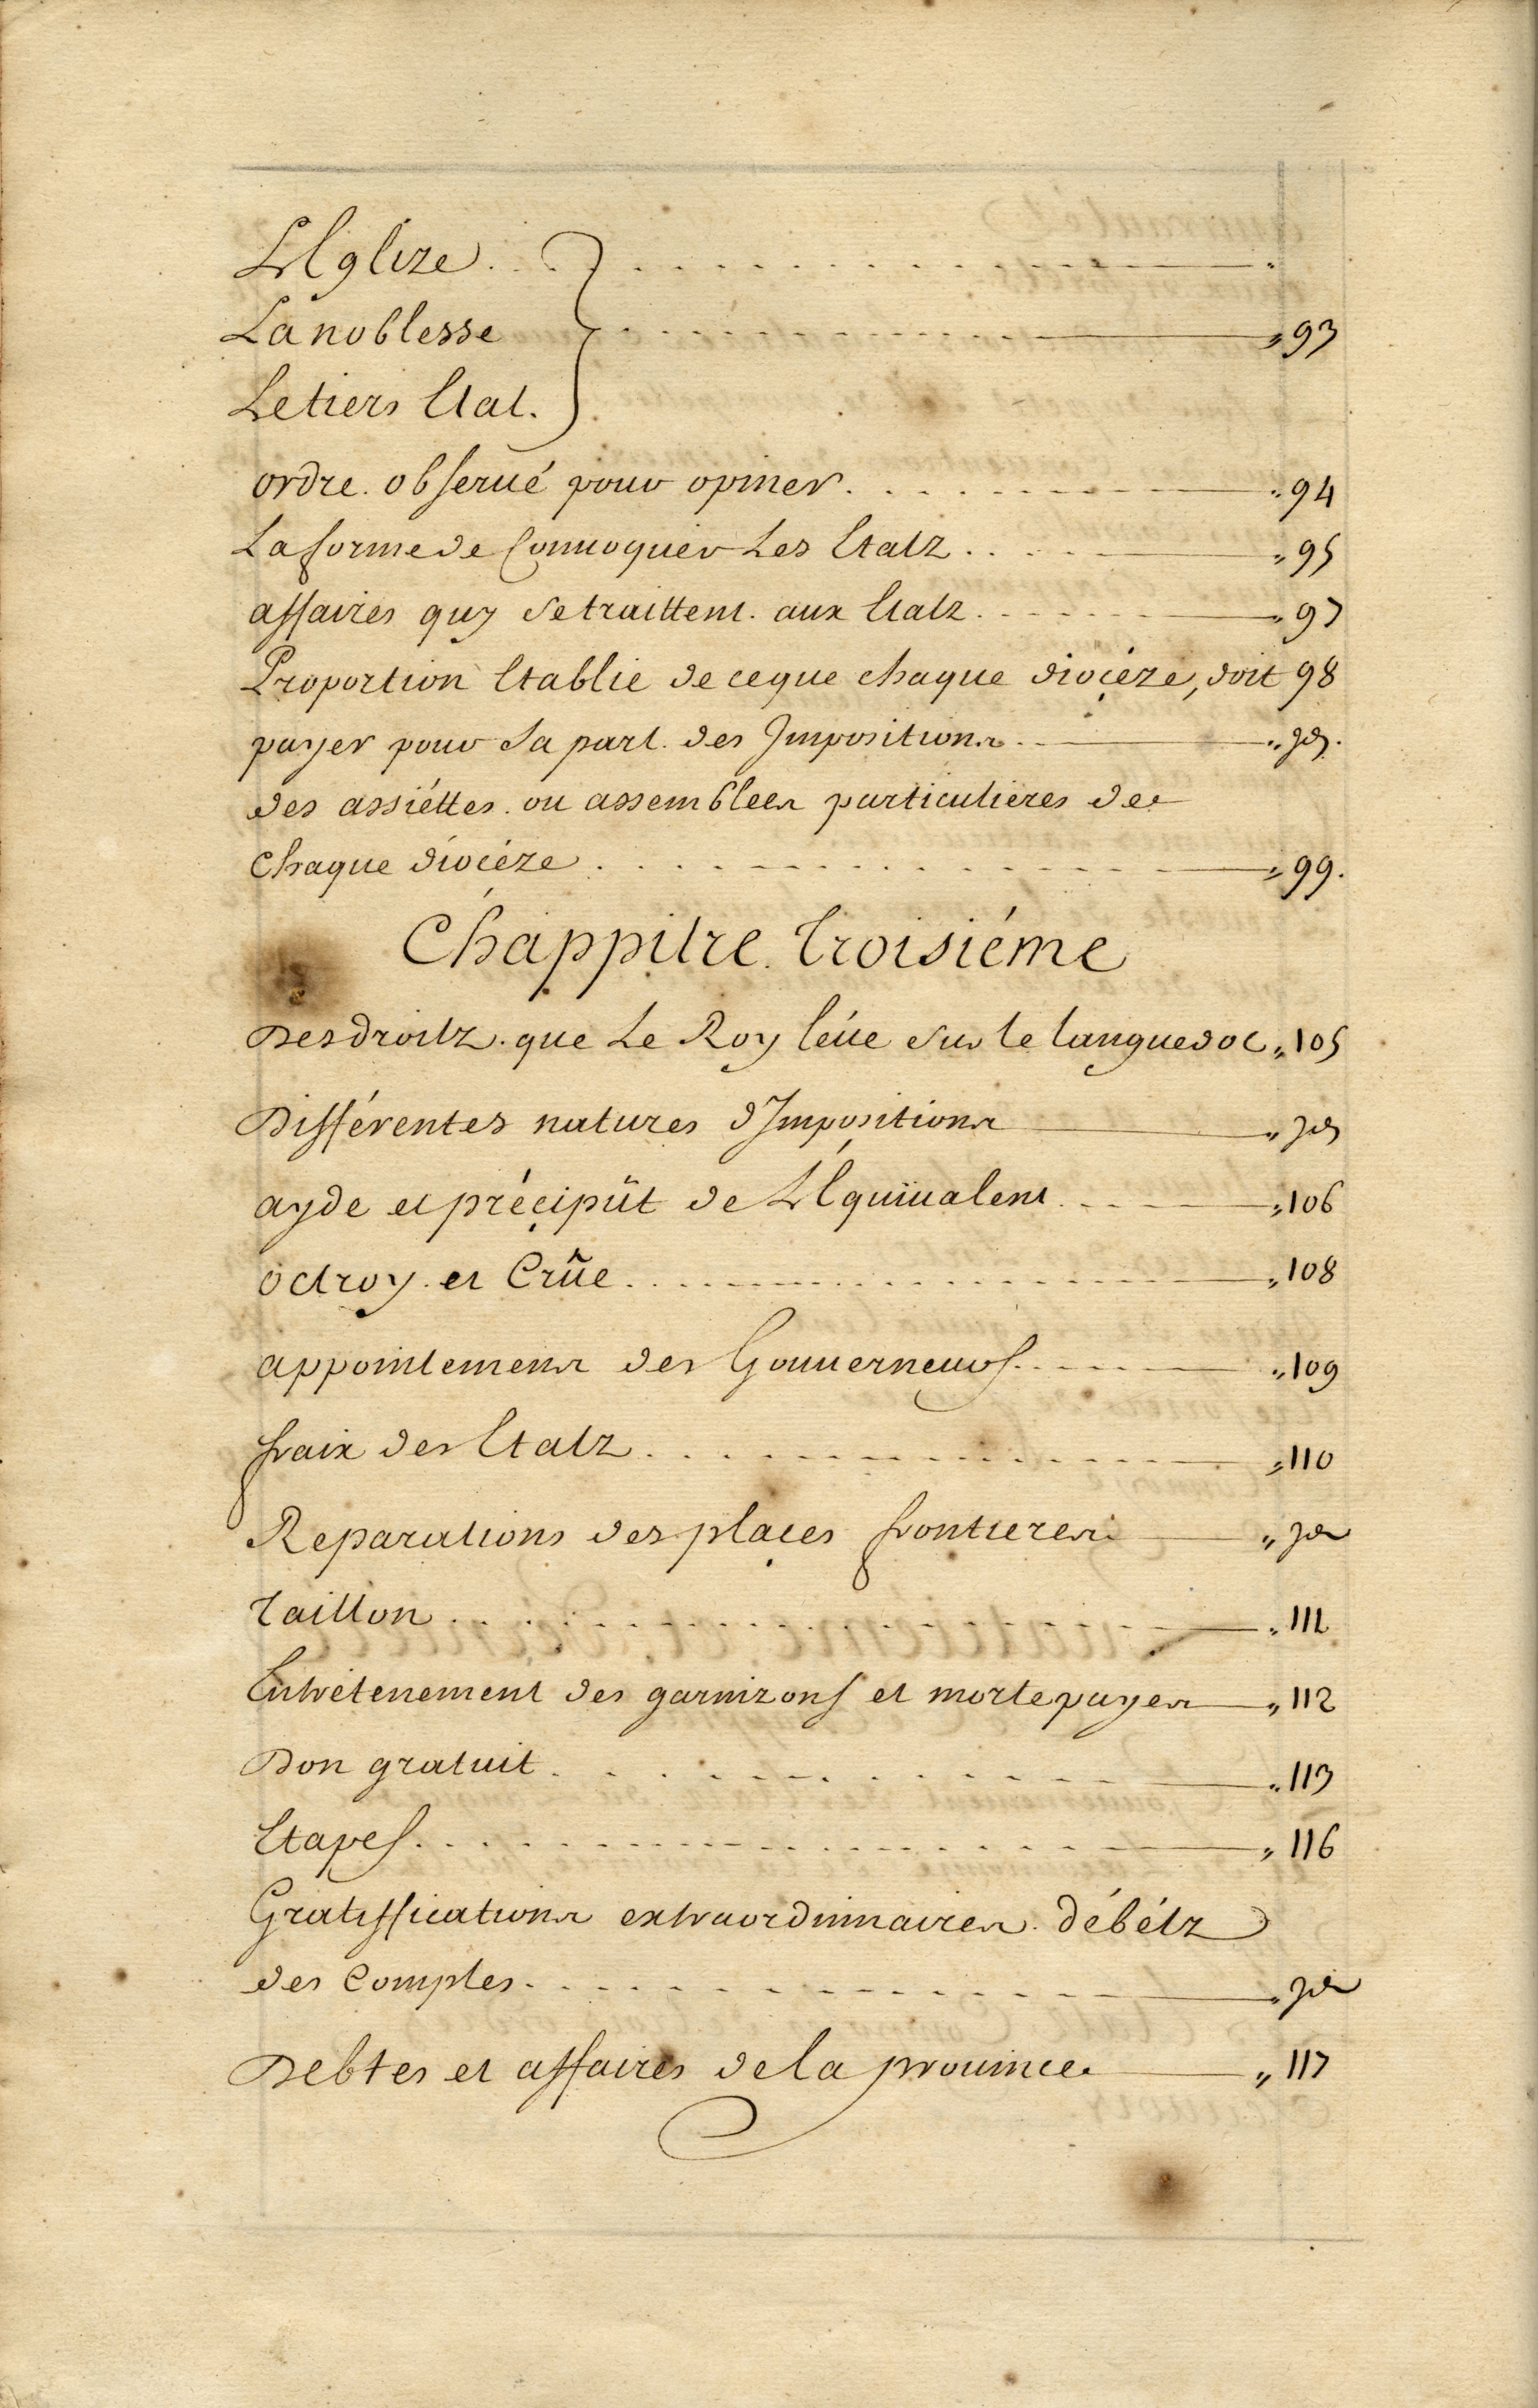 L'Eglize . . . . . . . . . . . . . . .
La noblesse } . . . . . . . . . . . . „ 93
Le tiers Etat.
ordre. observé pour opiner . . . . . . . . „ 94
La forme de Convoquer Les Etatz . . . . . „ 95
affaires quy se traittent. aux Etatz . . . . . „ 97
Proportion Etablie de ce que chaque dioçéze, doit 98
payer pour sa part. des Impositions . „ Id.
des assiéttes. ou assemblées particulieres de
Chaque diocéze . . . . . . . . . . . . . „ 99.
Chappitre. Troisiéme
Des droitz. que Le Roy léue sur le languedoc „ 105
Différentes natures d'Impositions „ Id
ayde et préçipüt de L'Equiualent . . . „ 106
octroy. et Crûe . . . . . . . . . . . . . . „ 108
appointemens des Gouuerneurs . . . . . „ 109
fraix des Etatz . . . . . . . . . . . . . „ 110
Reparations des plaçes frontieres „ Id
Taillon . . . . . . . . . . . . . . . . . „ 111
Entrétenement des garnizons et mortepayes „ 112
Don gratuit . . . . . . . . . . . . . . „ 113
Etapes . . . . . . . . . . . . . . . . . „ 116
Gratiffications extraordinnaires. débétz
des Comptes . . . . . . . . . . . . . . „ Id
Debtes et affaires de la prouince „ 117